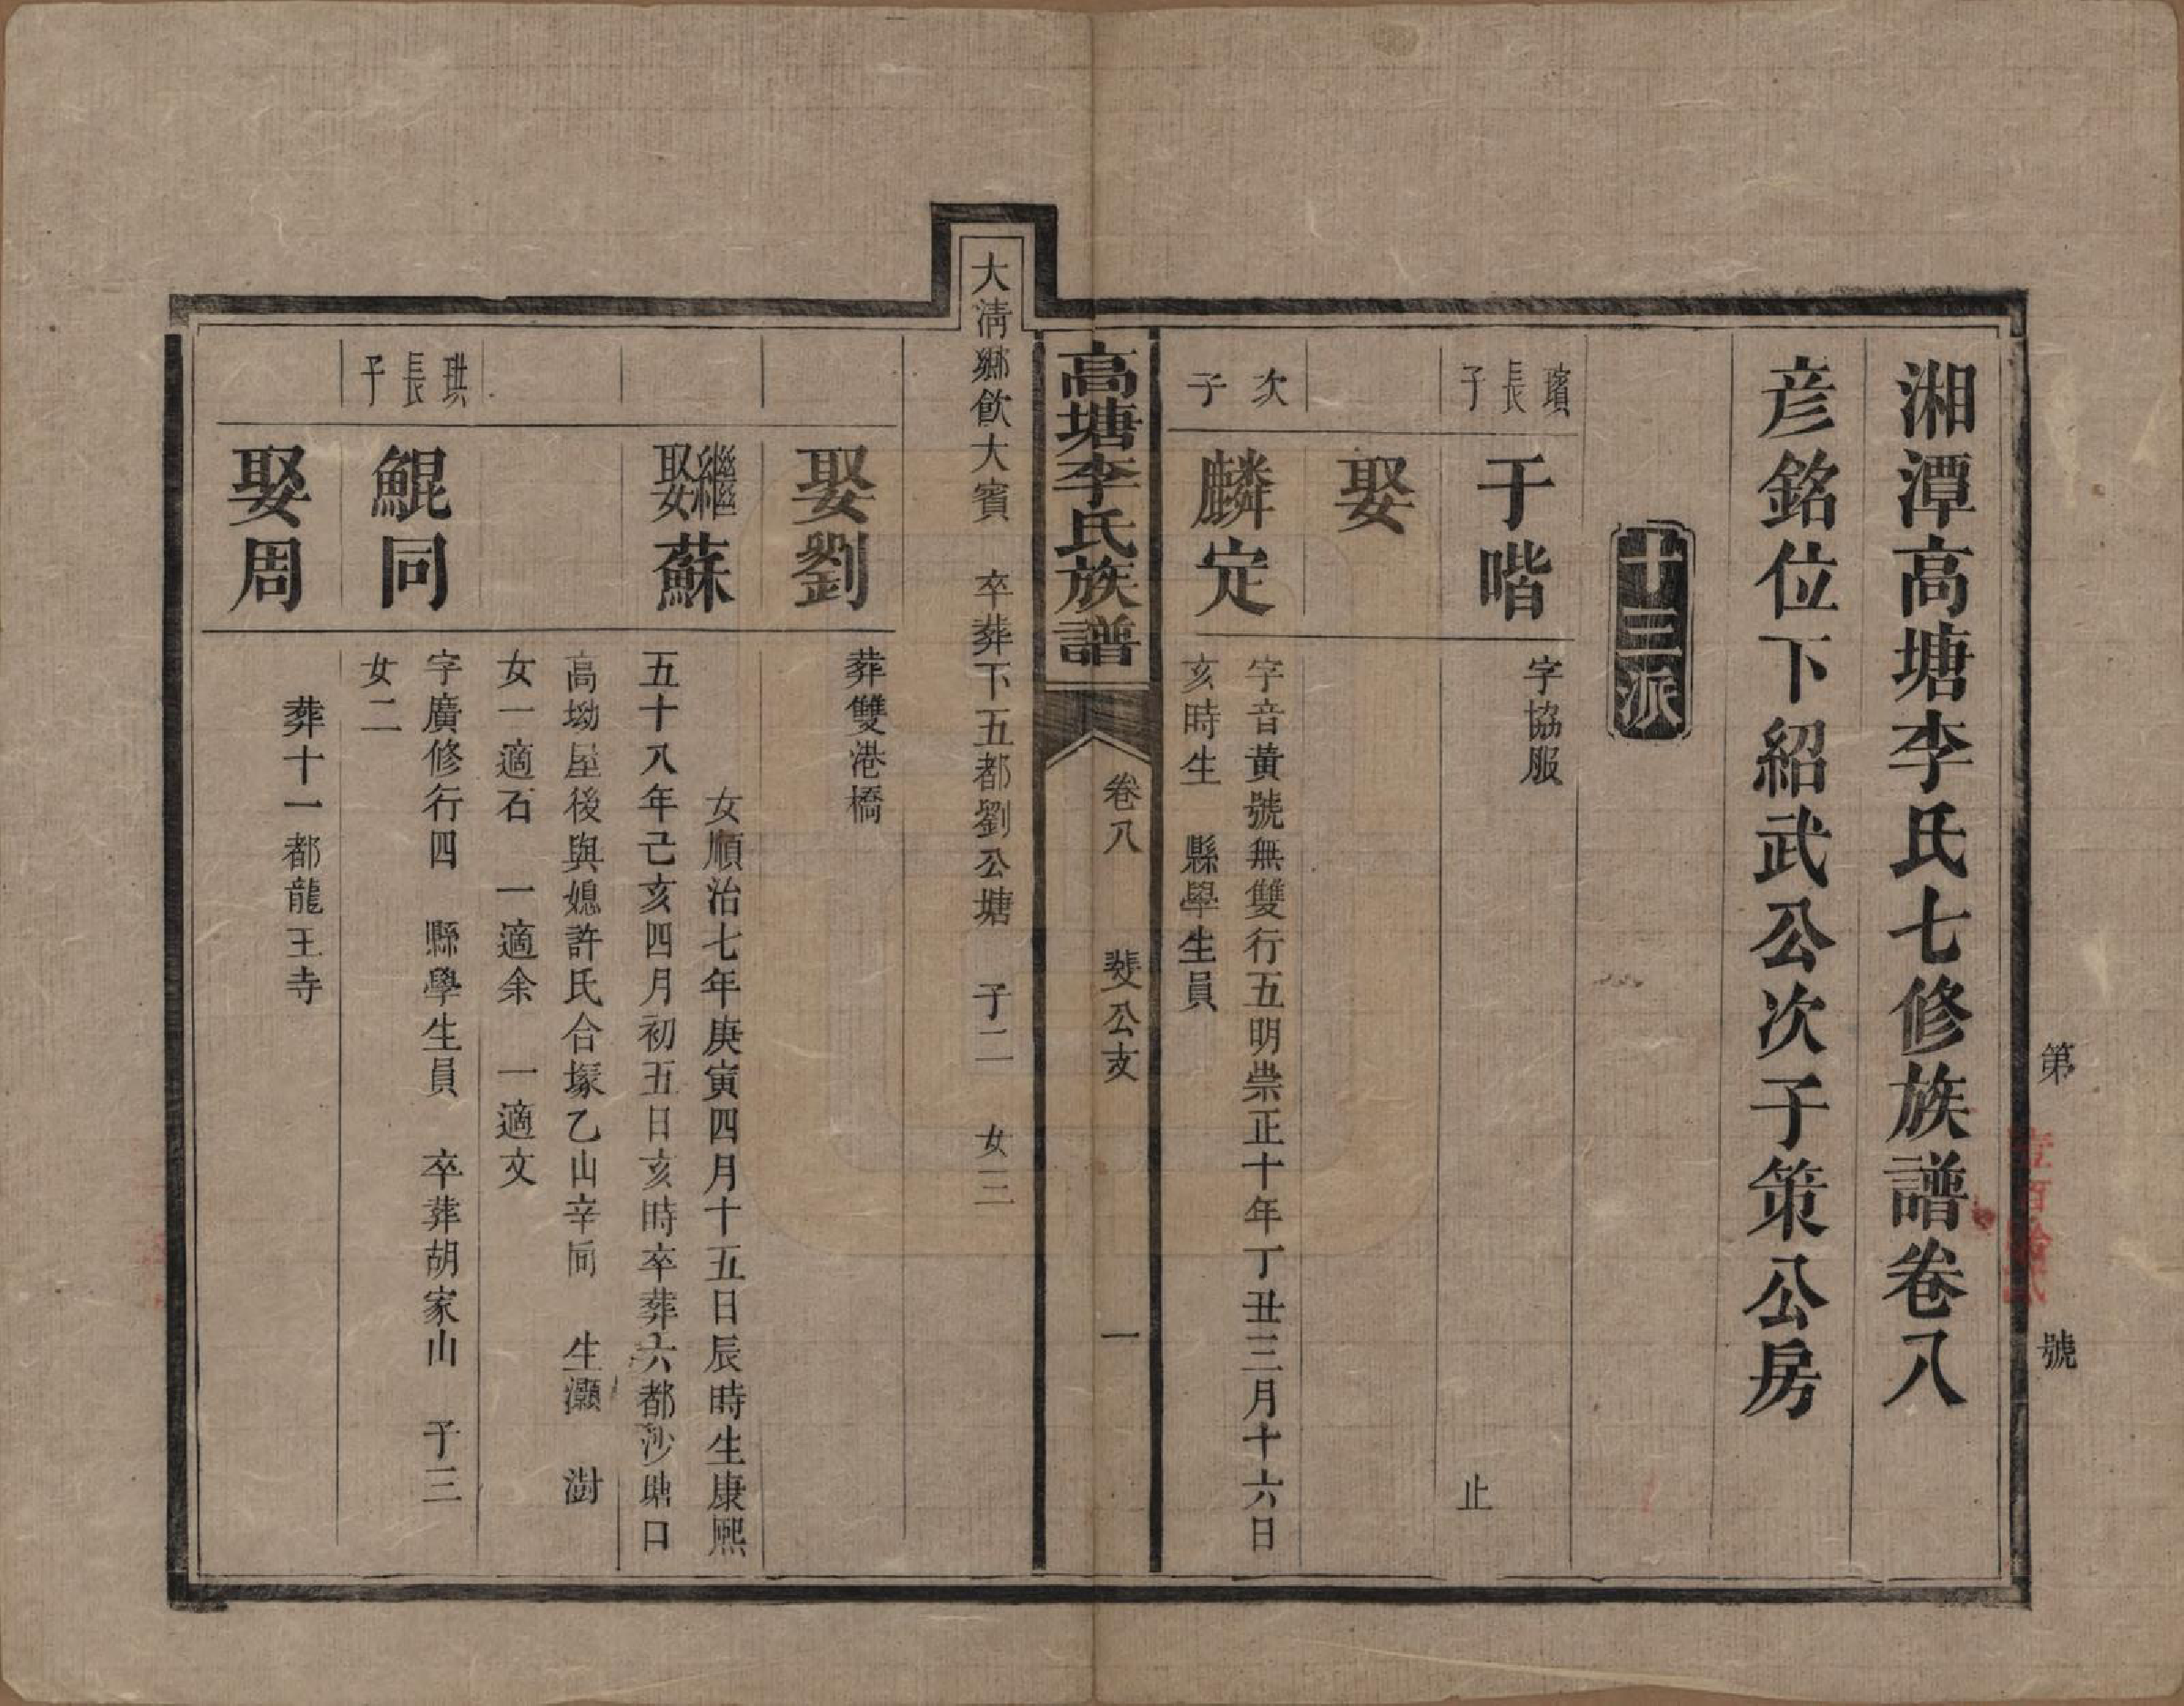 湘潭高塘李氏七修族譜卷八
彥銘位下紹武公次子策公房
十三派
璸長子
于喈
字協服
止
娶
次子
麟定
字音黃號無雙行五明崇正十年丁丑三月十六日
亥時生　縣學生員
高塘李氏族譜
卷八　斐公支　一
大清鄉飲大賓　卒葬下五都劉公塘　子二　女三
娶劉
葬雙港橋
繼娶蘇
女順治七年庚寅四月十五日辰時生康熙
五十八年己亥四月初五日亥時卒葬六都沙塘口
高坳屋後與媳許氏合塚乙山辛向　生灝　澍
女一適石　一適余　一適文
珙長子
鯤同
字廣修行四　縣學生員　卒葬胡家山　子三
女二
娶周
葬十一都龍王寺
第
號